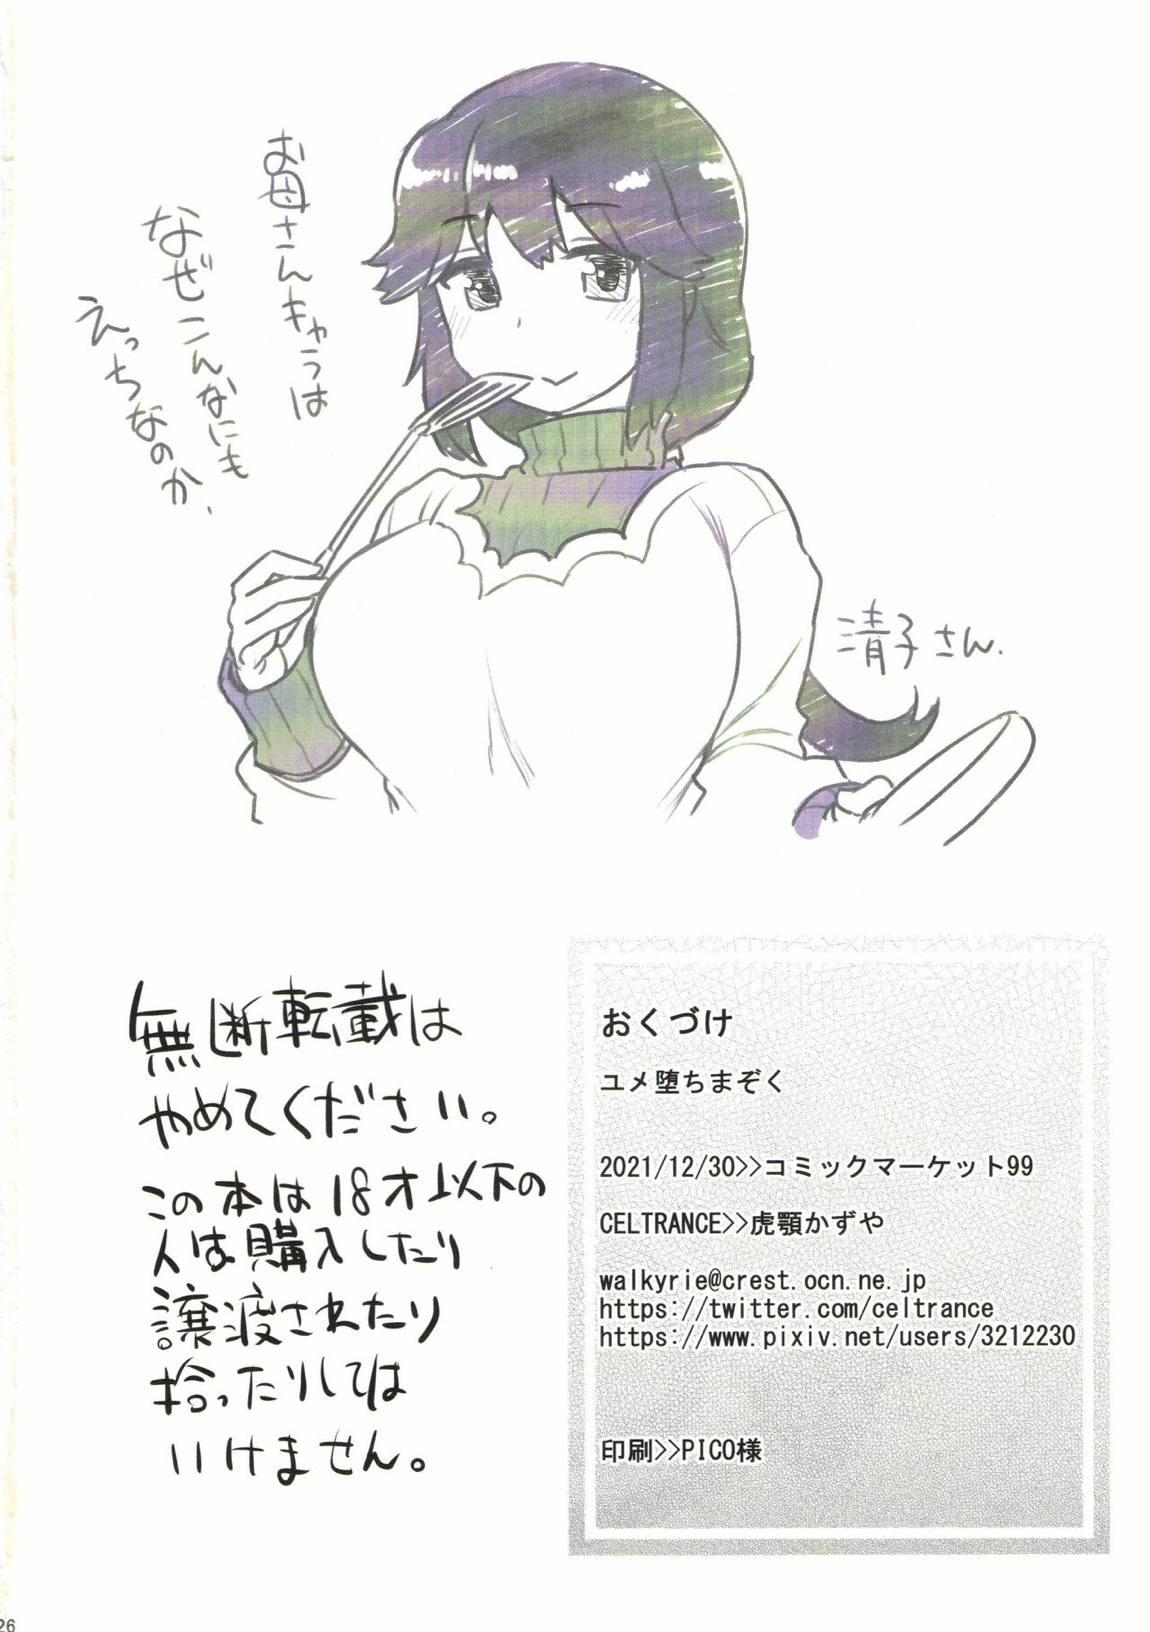 お母さんキャラは
なぜこんなにも
えっちなのか、
清子さん.
無断転載は
やめてください。
この本は18才以下の
人は購入したり
譲渡されたり
拾ったりしては
いけません。
おくづけ
ユメ堕ちまぞく
2021/12/30>>コミックマーケット99
CELTRANCE>>虎顎かずや
walkyrie@crest.ocn.ne.jp
https://twitter.com/celtrance
https://www.pixiv.net/users/3212230
印刷>>PICO様
26